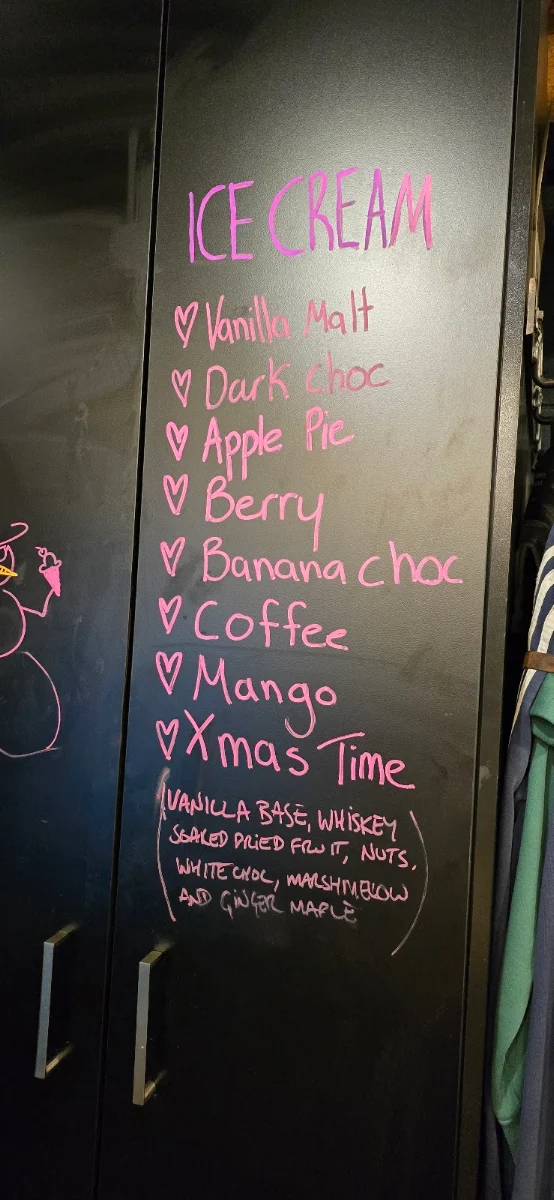 ICE CREAM
♡ Vanilla Malt
♡ Dark choc
♡ Apple Pie
♡ Berry
♡ Banana choc
♡ Coffee
♡ Mango
♡ Xmas Time
(VANILLA BASE, WHISKEY
SOAKED DRIED FRUIT, NUTS,
WHITE CHOC, MARSHMELOW
AND GINGER MAPLE)